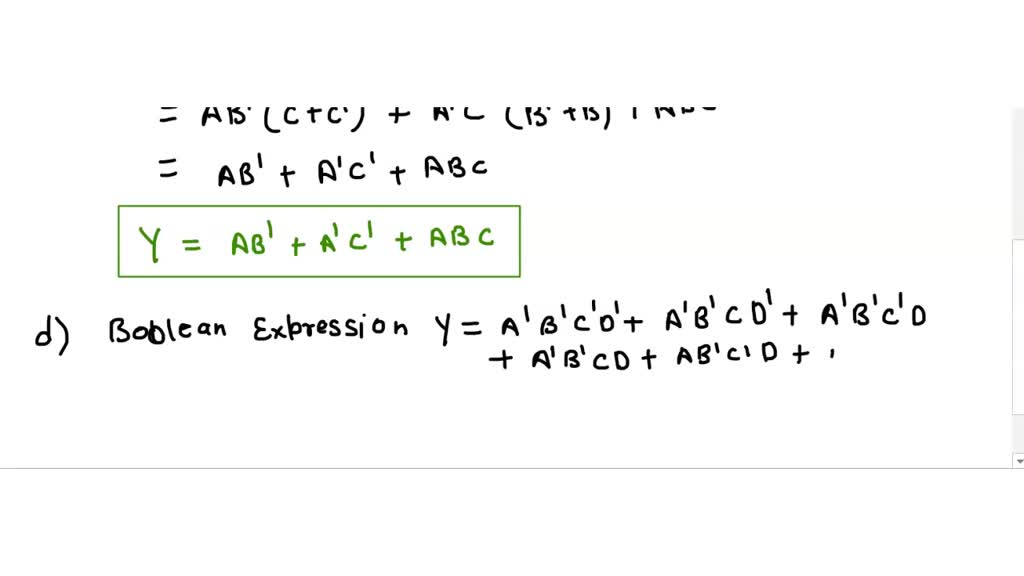 = AB' (C+C') + A'C' (B'+B) + ABC
= AB' + A'C' + ABC
Y = AB' + A'C' + ABC
d) Boolean Expression Y = A'B'C'D' + A'B'CD' + A'B'C'D
+ A'B'CD + AB'C'D + '